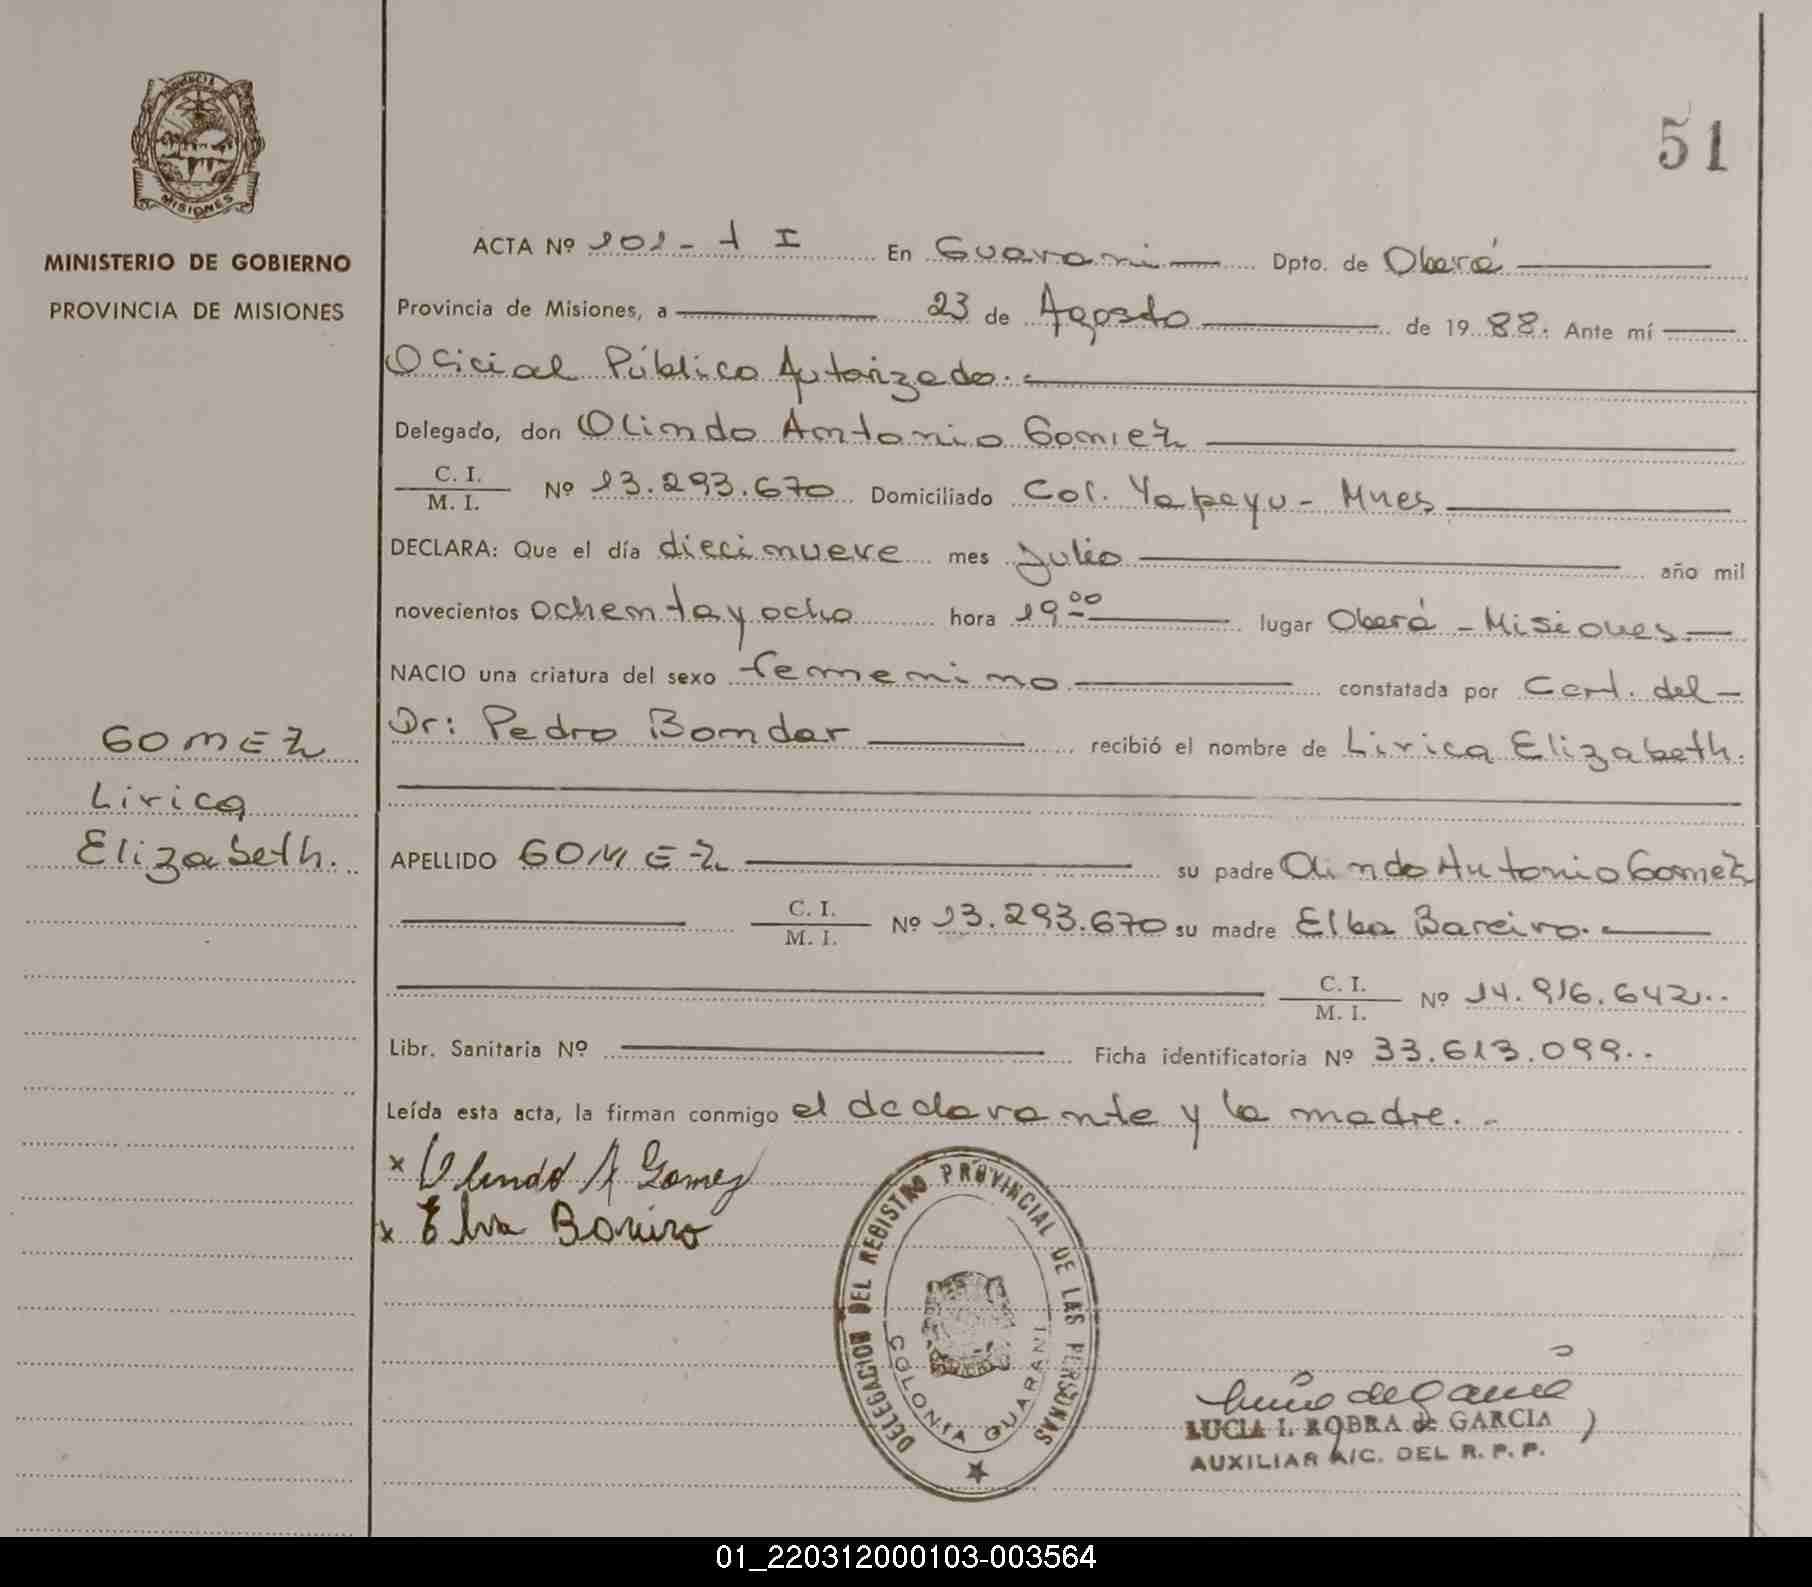 PROVINCIA
MISIONES
MINISTERIO DE GOBIERNO
PROVINCIA DE MISIONES
51
ACTA Nº 101-1 I En Guarani Dpto. de Oberá
Provincia de Misiones, a 23 de Agosto de 19 88. Ante mí
Oficial Público Autorizado.
Delegado, don Olindo Antonio Gomez
C. I.
M. I.
Nº 13.293.670 Domiciliado Col. Yapeyu - Mnes
DECLARA: Que el día diecinueve mes Julio año mil
novecientos ochenta y ocho hora 19 00 lugar Oberá - Misiones
NACIO una criatura del sexo femenino constatada por Cert. del
GOMEZ
Lirica
Elizabeth.
Dr: Pedro Bondar recibió el nombre de Lirica Elizabeth.
APELLIDO GOMEZ su padre Olindo Antonio Gomez
C. I.
M. I.
Nº 13.293.670 su madre Elba Bareiro.
C. I.
M. I.
Nº 14.916.642..
Libr. Sanitaria Nº Ficha identificatoria Nº 33.613.099..
Leída esta acta, la firman conmigo el declarante y la madre.-
x Olindo A Gomez
x Elva Bareiro
DELEGACION DEL REGISTRO PROVINCIAL DE LAS PERSONAS
COLONIA GUARANI
LUCIA I. ROBRA de GARCIA
AUXILIAR A/C. DEL R. P. P.
01_220312000103-003564